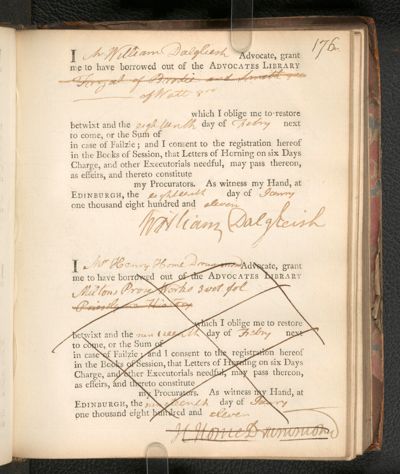 176.
I Mr William Dalgleish Advocate, grant
me to have borrowed out of the ADVOCATES LIBRARY
of Watt 8vo
which I oblige me to restore
betwixt and the eighteenth day of Febry next
to come, or the Sum of
in case of Failzie; and I consent to the registration hereof
in the Books of Session, that Letters of Horning on six Days
Charge, and other Executorials needful, may pass thereon,
as effeirs, and thereto constitute
my Procurators. As witness my Hand, at
EDINBURGH, the eighteenth day of Janry
one thousand eight hundred and eleven
William Dalgleish
I Mr Henry Home Drummond Advocate, grant
me to have borrowed out of the ADVOCATES LIBRARY
Miltons Prose Works 3 vol fol
which I oblige me to restore
betwixt and the nineteenth day of Febry next
to come, or the Sum of
in case of Failzie; and I consent to the registration hereof
in the Books of Session, that Letters of Horning on six Days
Charge, and other Executorials needful, may pass thereon,
as effeirs, and thereto constitute
my Procurators. As witness my Hand, at
EDINBURGH, the nineteenth day of Janry
one thousand eight hundred and eleven
H Home Drummond